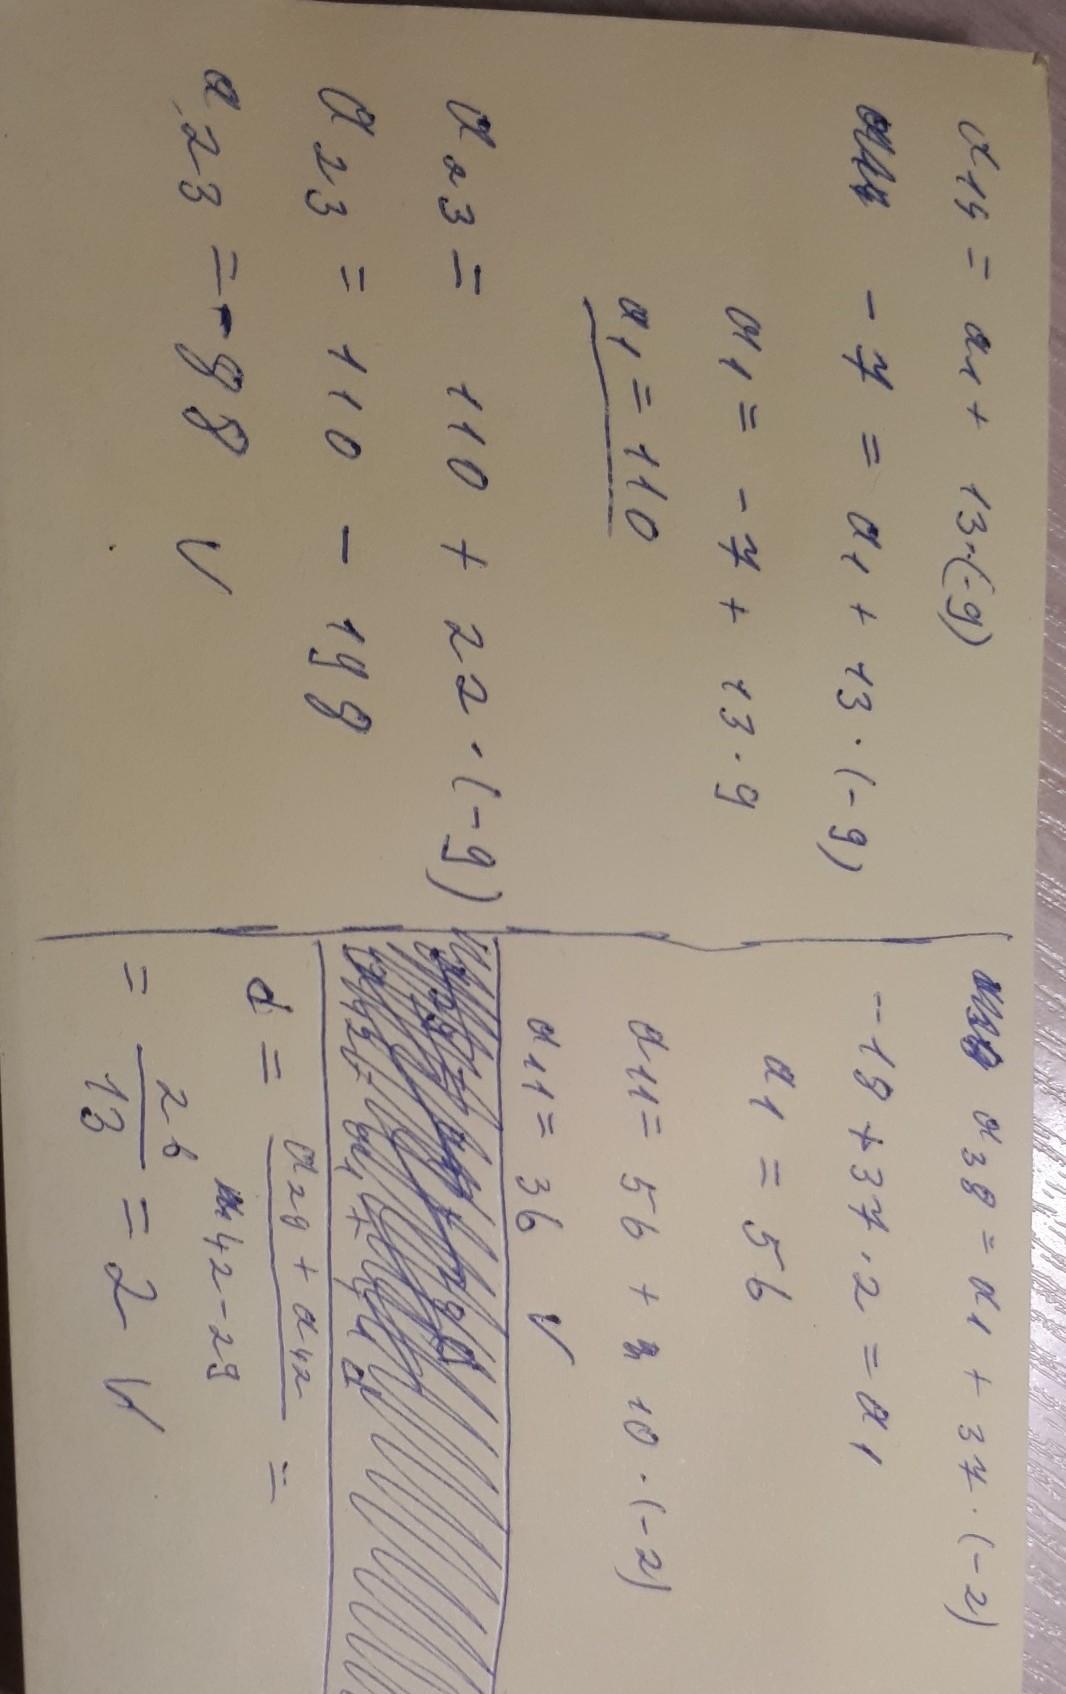 a14 = a1 + 13·(-9)
-7 = a1 + 13·(-9)
a1 = -7 + 13·9
a1 = 110
a23 = 110 + 22·(-9)
a23 = 110 - 198
a23 = -88 V
a38 = a1 + 37·(-2)
-18 + 37·2 = a1
a1 = 56
a11 = 56 + 10·(-2)
a11 = 36 V
d = a29 + a42 =
42-29
= 26 = 2 V
13